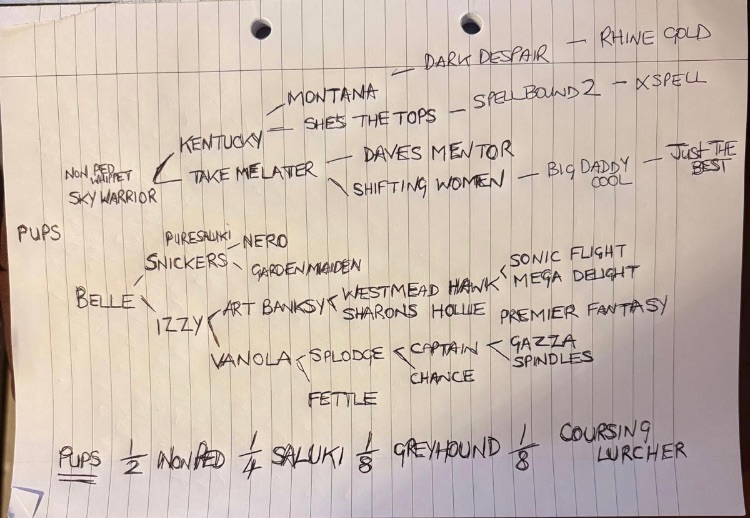 DARK DESPAIR - RHINE GOLD
MONTANA
SHE'S THE TOPS - SPELLBOUND 2 - XSPELL
KENTUCKY
NON PED WHIPPET
SKY WARRIOR
TAKE ME LATER
DAVES MENTOR
SHIFTING WOMEN - BIG DADDY COOL - JUST THE BEST
PUPS
PURE SALUKI
SNICKERS
NERO
GARDEN MAIDEN
BELLE
IZZY
ART BANKSY
WESTMEAD HAWK
SONIC FLIGHT
MEGA DELIGHT
SHARONS HOLLIE
PREMIER FANTASY
VANOLA
SPLODGE
CAPTAIN
GAZZA
SPINDLES
CHANCE
FETTLE
PUPS 1/2 NON PED 1/4 SALUKI 1/8 GREYHOUND 1/8 COURSING LURCHER